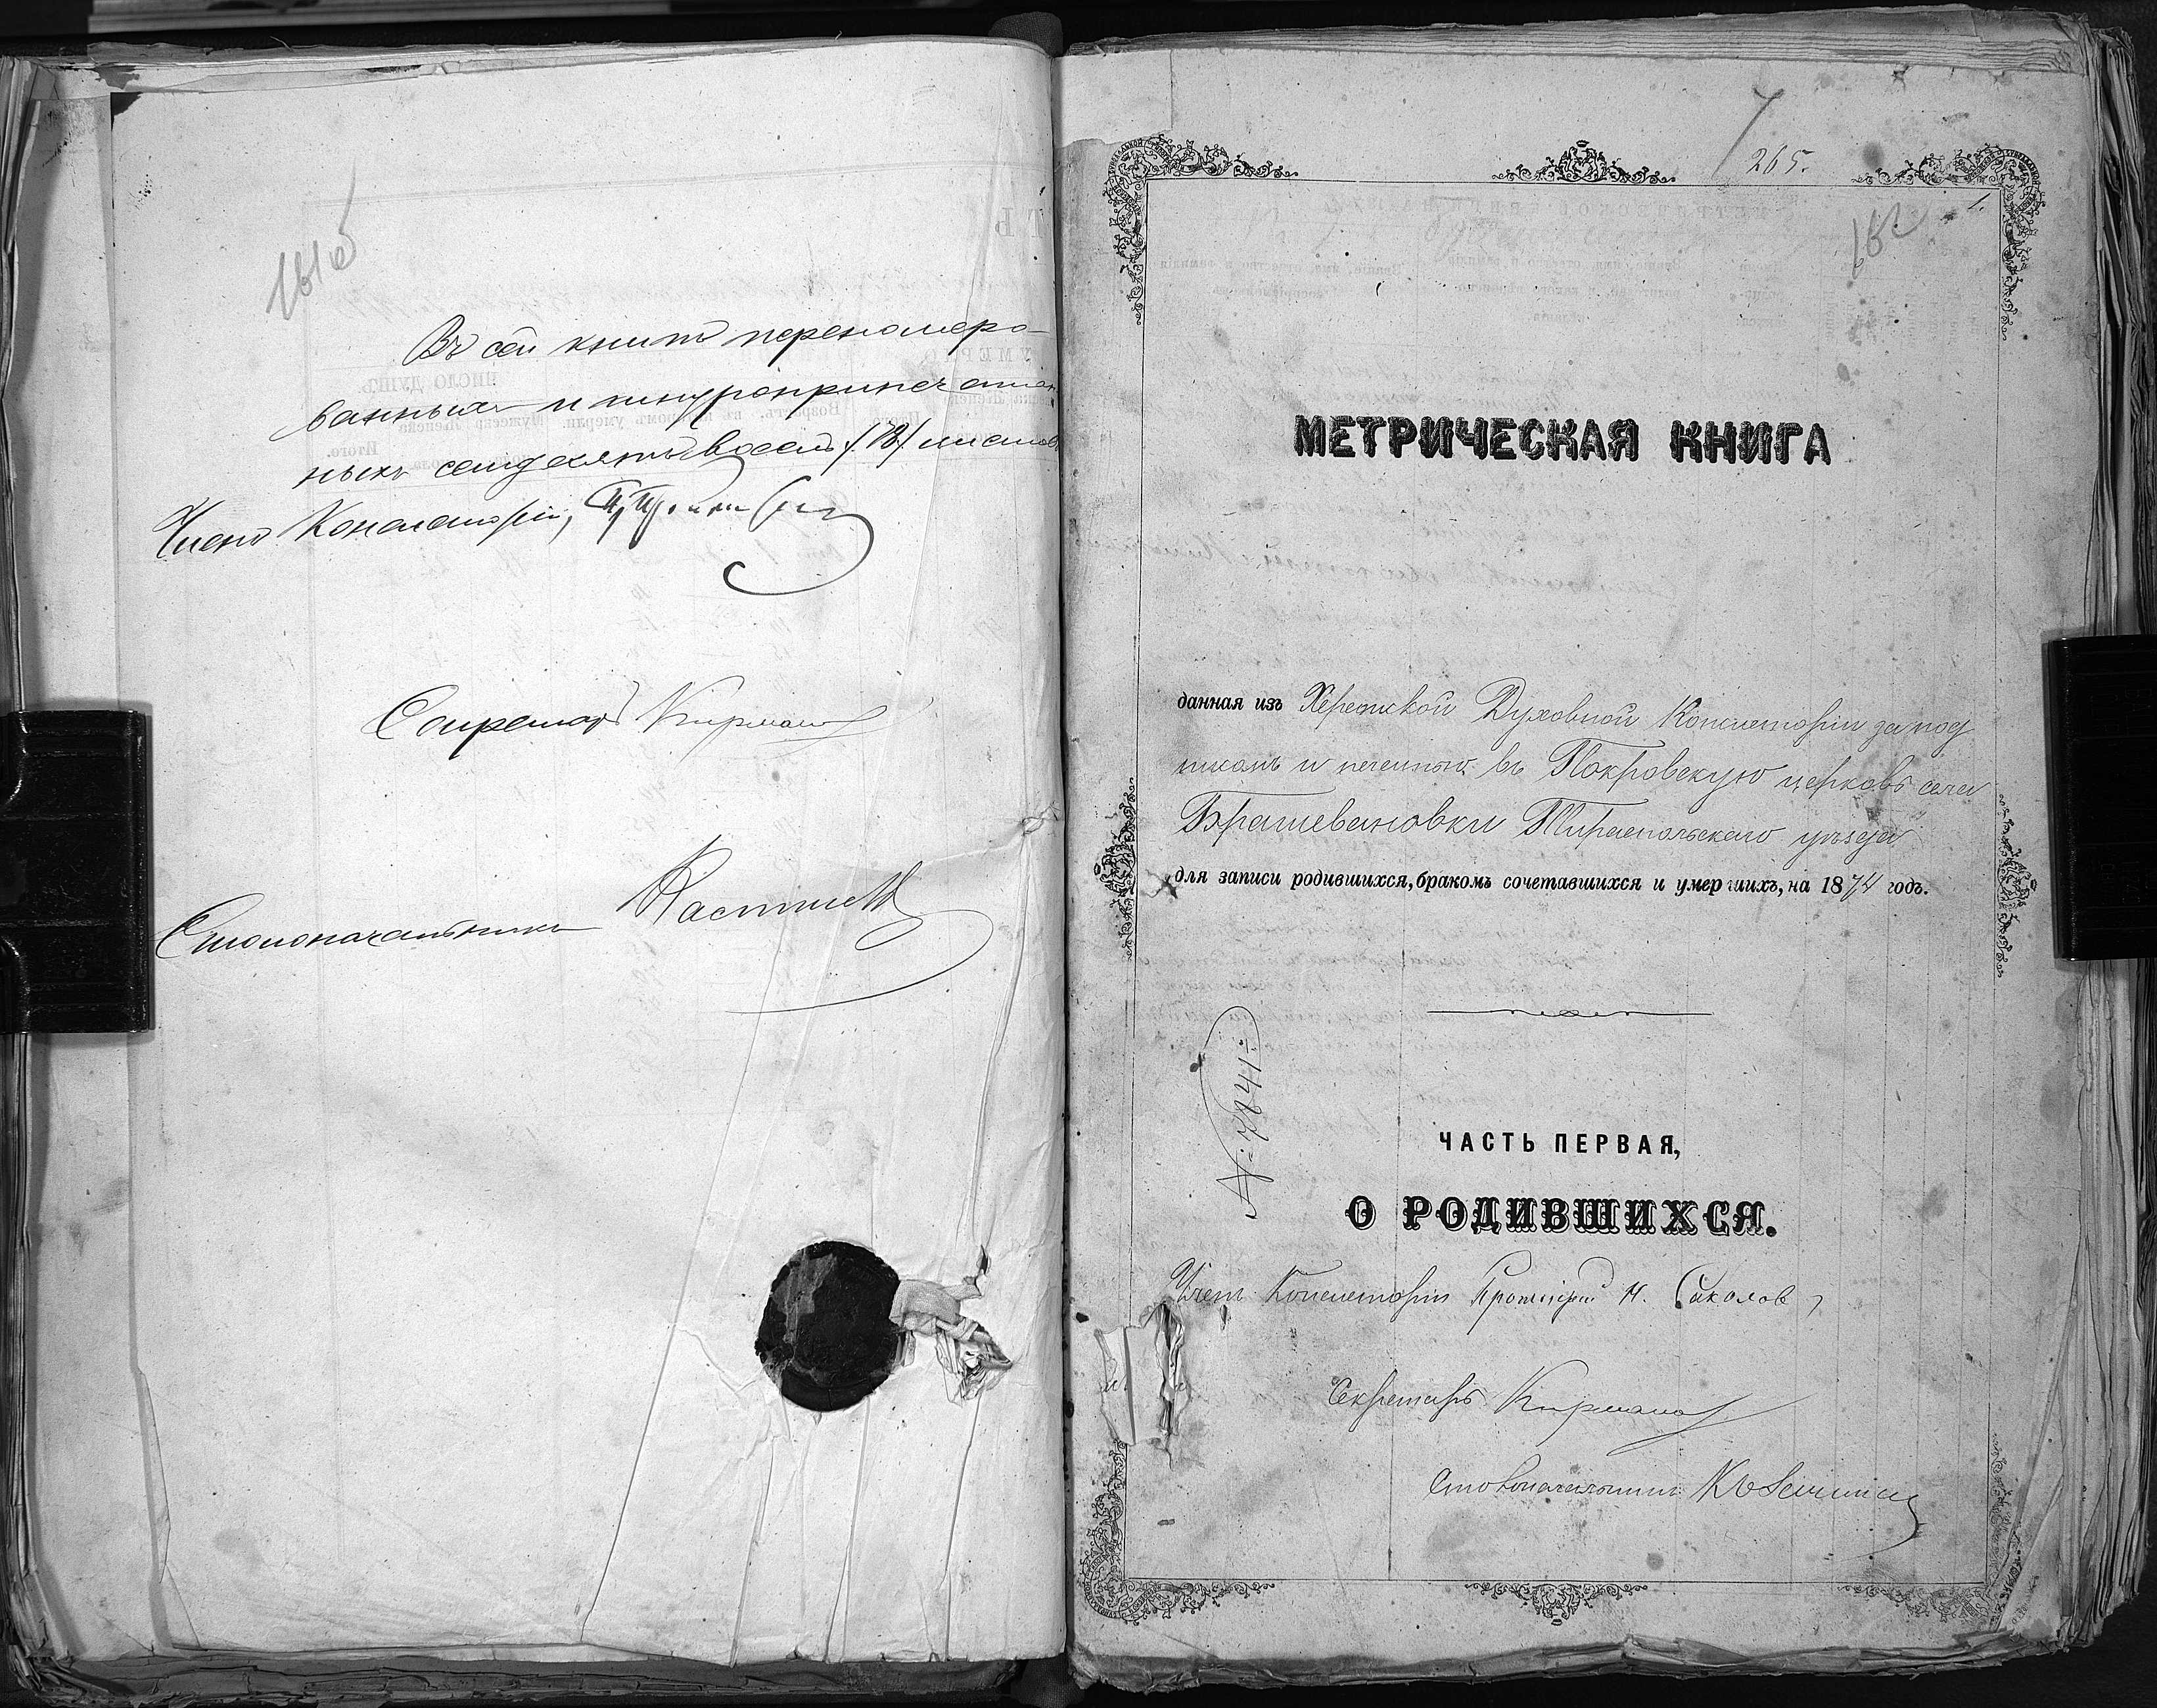 161об
Въ сей книгѣ переномеро-
ванныхъ и шнуроприпечатан
ныхъ семдесятъ восемь /78/ листовъ
Членъ Консисторіи,
Секретарь Кирмало
Столоначальникъ
265.
1.
162
МЕТРИЧЕСКАЯ КНИГА
данная изъ Херсонской Духовной Консисторіи за под
писомъ и печатью въ Покровскую церковь села
Брашевановки Тираспольскаго уѣзда
для записи родившихся, бракомъ сочетавшихся и умершихъ, на 1874 годъ.
№ 7841
ЧАСТЬ ПЕРВАЯ,
О РОДИВШИХСЯ.
Членъ Консисторіи Протоіерей Н. Соколовъ
Секретарь Кирмало
Столоначальникъ